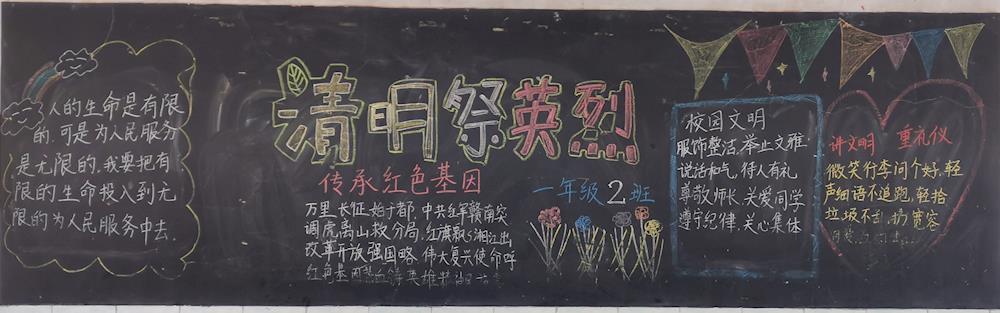 人的生命是有限
的,可是为人民服务
是无限的,我要把有
限的生命投入到无
限的为人民服务中去.
清明祭英烈
传承红色基因
万里长征始于都,中共红军赣南突
调虎离山救分局,红旗飘飘湘江出
改革开放强国略,伟大复兴使命呼
红色基因 英雄精
一年级2班
校园文明
服饰整洁,举止文雅
说话和气,待人有礼
尊敬师长,关爱同学
遵守纪律,关心集体
讲文明 重礼仪
微笑行李问个好,轻
声细语不追跑,轻拾
垃圾不乱扔,宽容